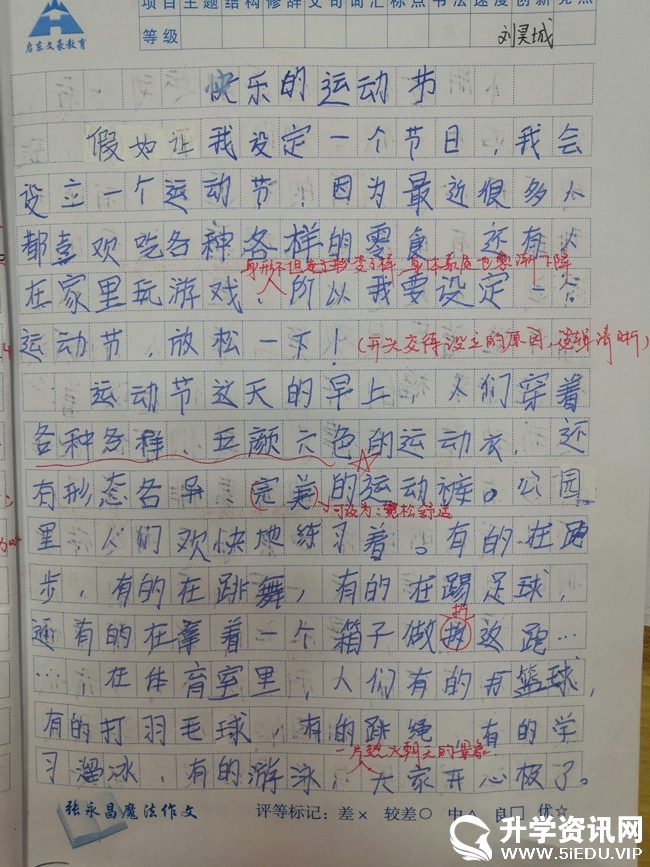 项目主题结构修辞文句词汇标点书法速度创新亮点
等级
启东文豪教育
刘昊城
快乐的运动节
假如让我设定一个节日，我会
设立一个运动节，因为最近很多人
都喜欢吃各种各样的零食，还有人
在家里玩游戏，所以我要设定一个
运动节，放松一下！
(开头交待设立的原因，逻辑清晰)
运动节这天的早上，人们穿着
各种各样、五颜六色的运动衣，还
有形态各异、完美的运动裤。公园
可改为：宽松舒适
里，人们欢快地练习着。有的在跑
步，有的在跳舞，有的在踢足球，
还有的在拿着一个箱子做
放跑…
…，在体育室里，人们有的打篮球，
有的打羽毛球，有的跳绳，有的学
一片热火朝天的景象
习溜冰，有的游泳，大家开心极了。
张永昌魔法作文
评等标记：差× 较差○ 中△ 良□ 优☆
升学资讯网
WWW.5IEDU.VIP